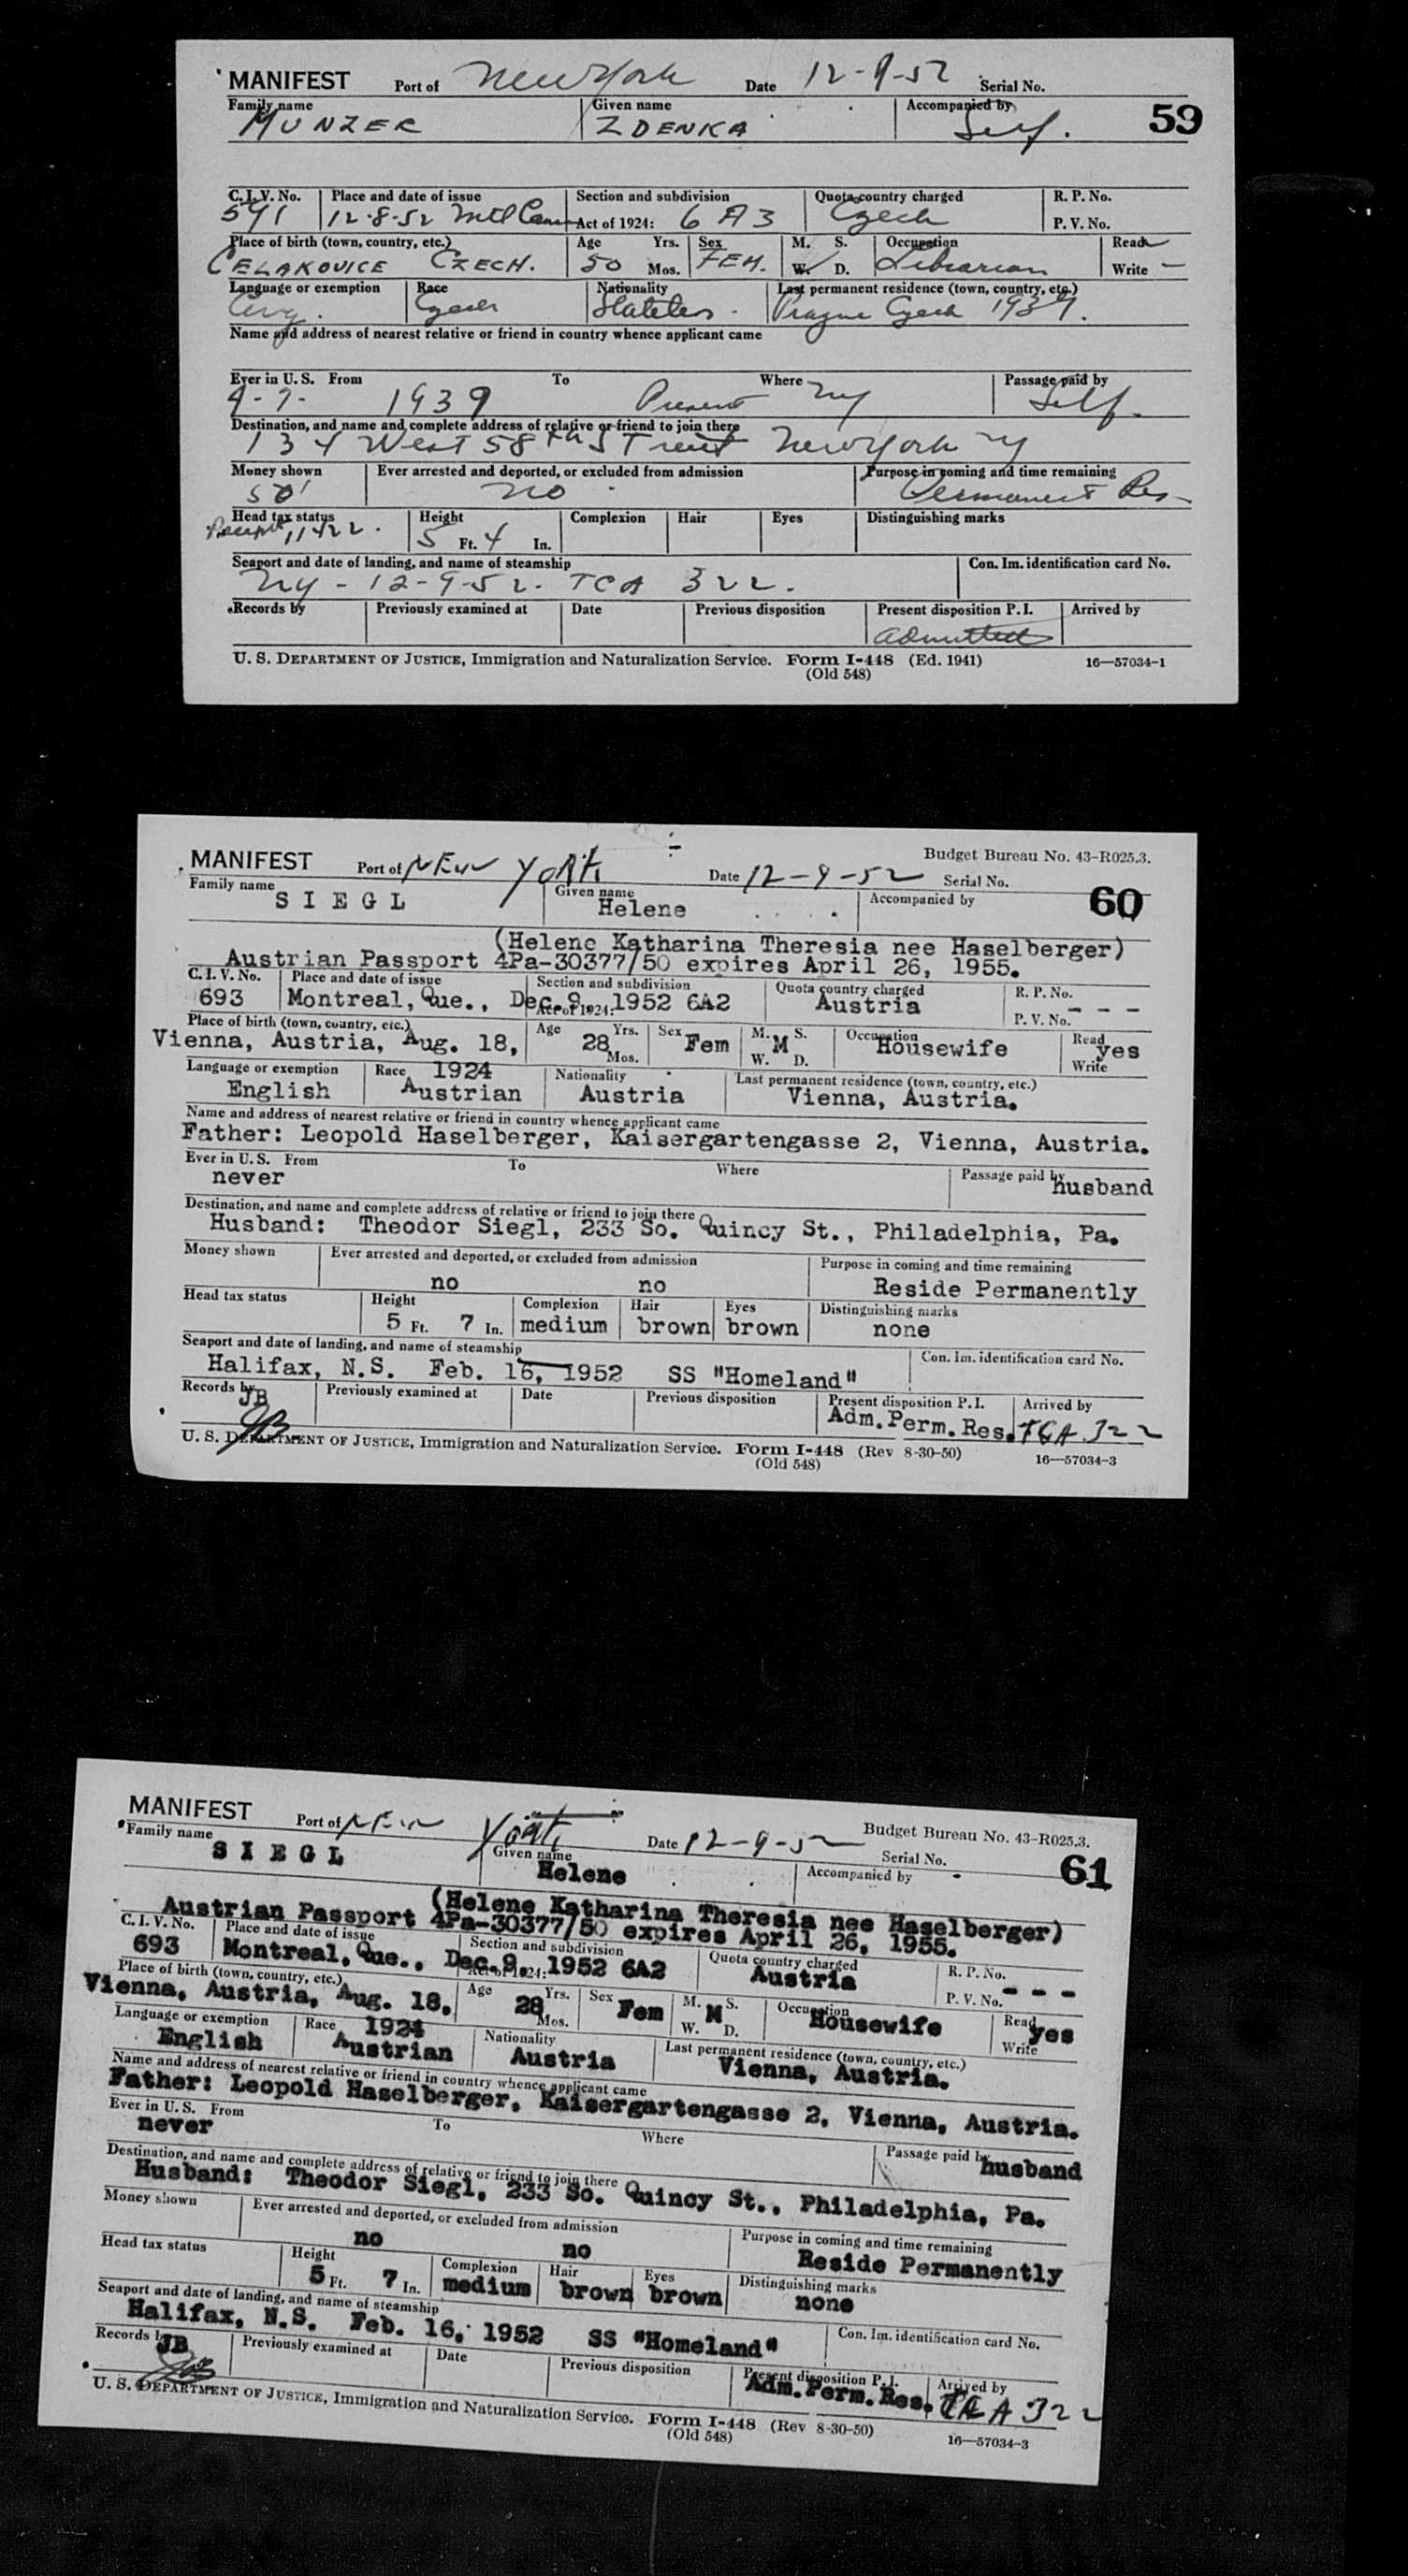 MANIFEST Port of New York Date 12-9-52 Serial No.
Family name Given name Accompanied by 59
MUNZER ZDENKA Self.
C. I. V. No. Place and date of issue Section and subdivision Quota country charged R. P. No.
591 12-8-52 Mtl Can Act of 1924: 6 A3 Czech P. V. No.
Place of birth (town, country, etc.) Age Yrs. Sex M. S. Occupation Read
CELAKOVICE CZECH. 50 Mos. FEM. W. D. Librarian Write
Language or exemption Race Nationality Last permanent residence (town, country, etc.)
Eng. Czech Stateless Prague Czech 1939.
Name and address of nearest relative or friend in country whence applicant came
Ever in U. S. From To Where Passage paid by
1939 Present NY Self.
Destination, and name and complete address of relative or friend to join there
134 West 58th Street New York NY
Money shown Ever arrested and deported, or excluded from admission Purpose in coming and time remaining
50 no Permanent Res
Head tax status Height Complexion Hair Eyes Distinguishing marks
11422. 5 Ft. 4 In.
Seaport and date of landing, and name of steamship Con. Im. identification card No.
NY - 12-9-52. TCA 322.
Records by Previously examined at Date Previous disposition Present disposition P. I. Arrived by
admitted
U. S. DEPARTMENT OF JUSTICE, Immigration and Naturalization Service. Form I-448 (Ed. 1941) 16—57034-1
(Old 548)
MANIFEST Port of NEW YORK Date 12-9-52 Serial No. Budget Bureau No. 43-R025.3.
Family name Given name Accompanied by 60
SIEGL Helene
(Helene Katharina Theresia nee Haselberger)
Austrian Passport 4Pa-30377/50 expires April 26, 1955.
C. I. V. No. Place and date of issue Section and subdivision Quota country charged R. P. No.
693 Montreal, Que., Dec. 9, 1952 Act of 1924: 6A2 Austria P. V. No. - - -
Place of birth (town, country, etc.) Age Yrs. Sex M. S. Occupation Read
Vienna, Austria, Aug. 18, 28 Mos. Fem M W. D. Housewife yes Write
Language or exemption Race 1924 Nationality Last permanent residence (town, country, etc.)
English Austrian Austria Vienna, Austria.
Name and address of nearest relative or friend in country whence applicant came
Father: Leopold Haselberger, Kaisergartengasse 2, Vienna, Austria.
Ever in U. S. From To Where Passage paid by
never husband
Destination, and name and complete address of relative or friend to join there
Husband: Theodor Siegl, 233 So. Quincy St., Philadelphia, Pa.
Money shown Ever arrested and deported, or excluded from admission Purpose in coming and time remaining
no no Reside Permanently
Head tax status Height Complexion Hair Eyes Distinguishing marks
5 Ft. 7 In. medium brown brown none
Seaport and date of landing, and name of steamship Con. Im. identification card No.
Halifax, N.S. Feb. 16, 1952 SS "Homeland"
Records by Previously examined at Date Previous disposition Present disposition P. I. Arrived by
JB Adm. Perm. Res. TCA 322
JB
U. S. DEPARTMENT OF JUSTICE, Immigration and Naturalization Service. Form I-448 (Rev 8-30-50) 16—57034-3
(Old 548)
MANIFEST Port of NEW YORK Date 12-9-52 Serial No. Budget Bureau No. 43-R025.3.
Family name Given name Accompanied by 61
SIEGL Helene
(Helene Katharina Theresia nee Haselberger)
Austrian Passport 4Pa-30377/50 expires April 26, 1955.
C. I. V. No. Place and date of issue Section and subdivision Quota country charged R. P. No.
693 Montreal, Que., Dec. 9, 1952 Act of 1924: 6A2 Austria P. V. No. - - -
Place of birth (town, country, etc.) Age Yrs. Sex M. S. Occupation Read
Vienna, Austria, Aug. 18, 28 Mos. Fem M W. D. Housewife yes Write
Language or exemption Race 1924 Nationality Last permanent residence (town, country, etc.)
English Austrian Austria Vienna, Austria.
Name and address of nearest relative or friend in country whence applicant came
Father: Leopold Haselberger, Kaisergartengasse 2, Vienna, Austria.
Ever in U. S. From To Where Passage paid by
never husband
Destination, and name and complete address of relative or friend to join there
Husband: Theodor Siegl, 233 So. Quincy St., Philadelphia, Pa.
Money shown Ever arrested and deported, or excluded from admission Purpose in coming and time remaining
no no Reside Permanently
Head tax status Height Complexion Hair Eyes Distinguishing marks
5 Ft. 7 In. medium brown brown none
Seaport and date of landing, and name of steamship Con. Im. identification card No.
Halifax, N.S. Feb. 16, 1952 SS "Homeland"
Records by Previously examined at Date Previous disposition Present disposition P. I. Arrived by
JB Adm. Perm. Res. TCA 322
JB
U. S. DEPARTMENT OF JUSTICE, Immigration and Naturalization Service. Form I-448 (Rev 8-30-50) 16—57034-3
(Old 548)